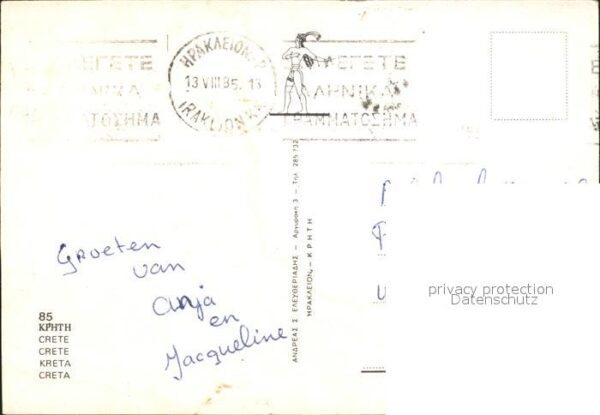 ΗΡΑΚΛΕΙΟΝ
13 VIII 85. 13
IRAKLION
ΛΕΓΕΤΕ
ΛΗΝΙΚΑ
ΓΡΑΜΜΑΤΟΣΗΜΑ
Groeten
van
Anja
en
Jacqueline
85
ΚΡΗΤΗ
CRETE
CRETE
KRETA
CRETA
ΑΝΔΡΕΑΣ Σ. ΕΛΕΥΘΕΡΙΑΔΗΣ –
3 – Τηλ. 285732
ΗΡΑΚΛΕΙΟΝ – ΚΡΗΤΗ
privacy protection
Datenschutz